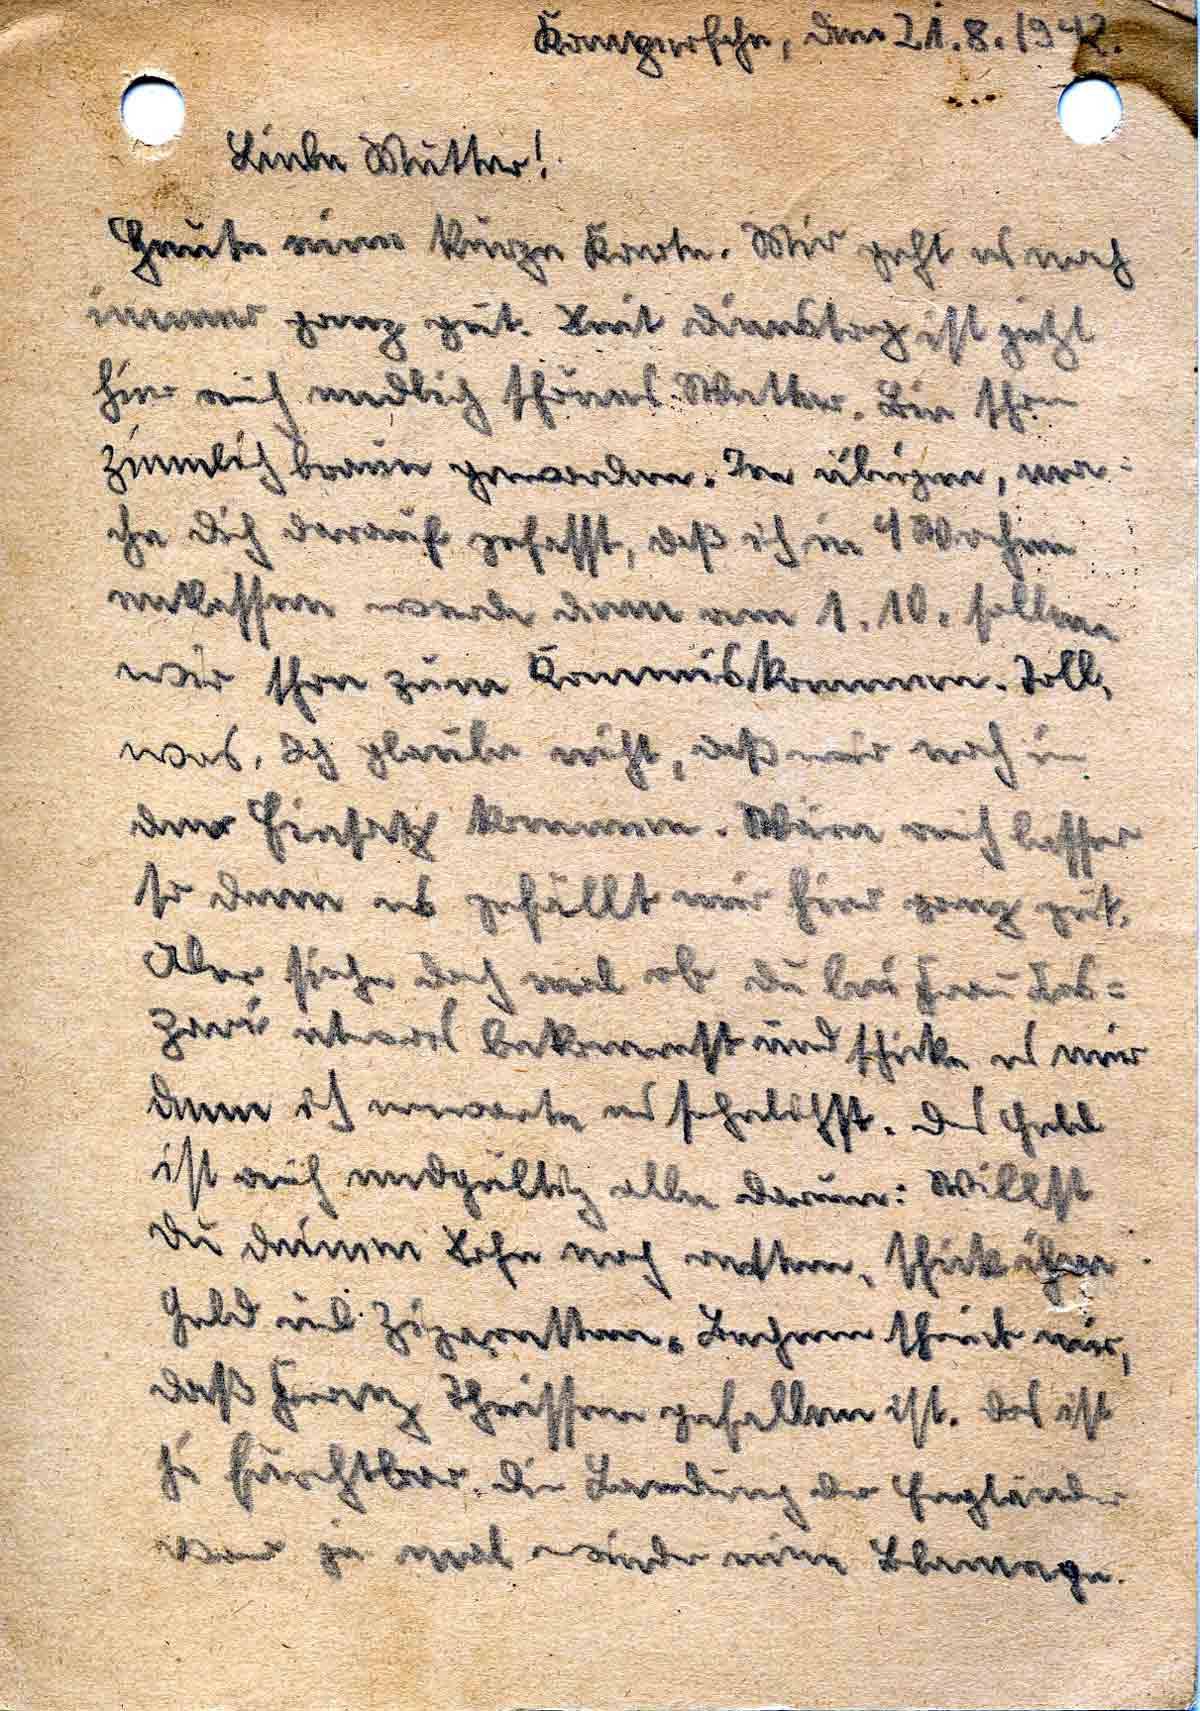 den 21.8.1942.
Liebe Mutter!
Heute eine kurze Karte. Mir geht es noch
immer ganz gut. Seit Dienstag ist jetzt
hier auch endlich schönes Wetter. Bin schon
ziemlich braun geworden. Im übrigen, ma=
che Dich darauf gefasst, daß ich in 4 Wochen
entlassen werde denn am 1.10. sollen
wir schon zum Kommis kommen. Toll,
was. Ich glaube nicht, daß wir noch in
den Einsatz kommen. Wäre auch besser
so denn es gefällt mir hier ganz gut.
Aber siehe doch mal ob du bei Frau Las=
zewi etwas bekommst und schicke es mir
denn ich erwarte es sehnlichst. Das Geld
ist auch endgültig alle darum: Willst
Du deinen Sohn noch retten, schick ihm
Geld und Zigaretten. schrieb mir,
daß Franz Theissen gefallen ist. Das ist
ja furchtbar. Die Landung der Engländer
war ja mal wieder eine Blamage.